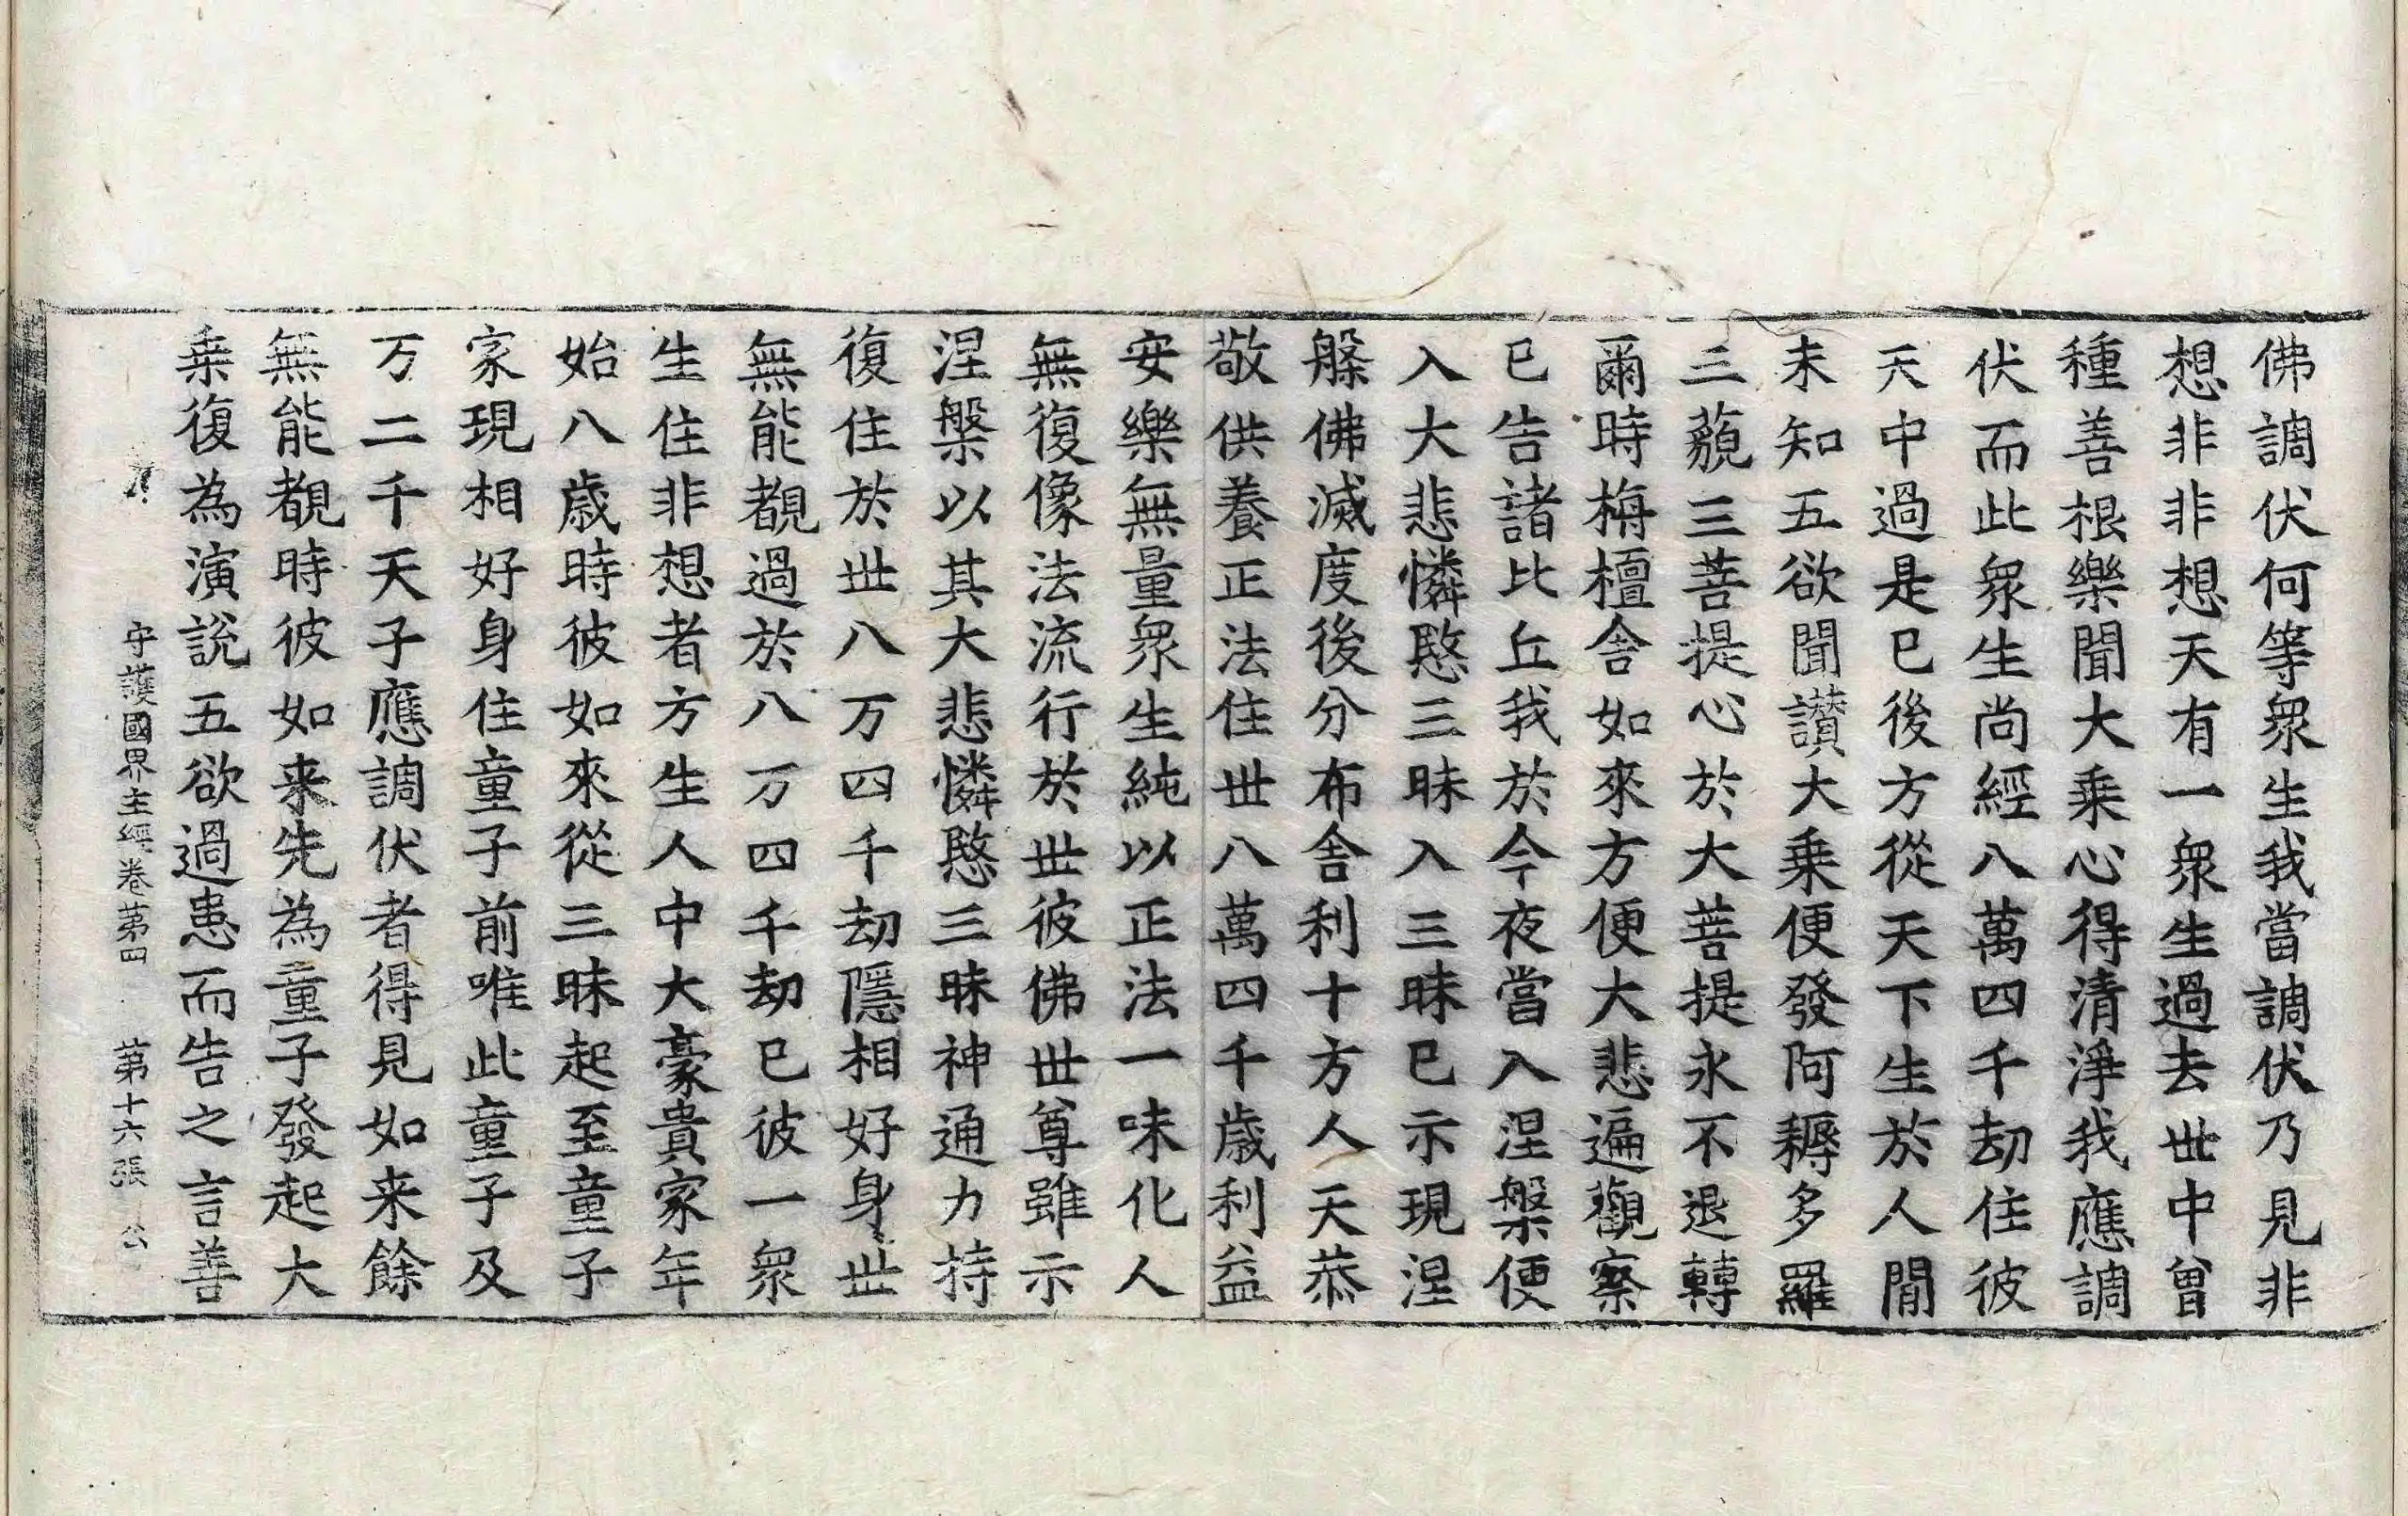 佛調伏何等衆生我當調伏乃見非
想非非想天有一衆生過去世中曾
種善根樂聞大乗心得清淨我應調
伏而此衆生尚經八萬四千劫住彼
天中過是已後方從天下生於人間
未知五欲聞讃大乗便發阿耨多羅
三藐三菩提心於大菩提永不退轉
爾時栴檀舍如來方便大悲遍觀察
已告諸比丘我於今夜當入涅槃便
入大悲憐愍三昧入三昧已示現涅
槃佛滅度後分布舍利十方人天恭
敬供養正法住世八萬四千歳利益
安樂無量衆生純以正法一味化人
無復像法流行於世彼佛世尊雖示
涅槃以其大悲憐愍三昧神通力持
復住於世八万四千劫隱相好身世
無能覩過於八万四千劫已彼一衆
生住非想者方生人中大豪貴家年
始八歳時彼如來從三昧起至童子
家現相好身住童子前唯此童子及
万二千天子應調伏者得見如来餘
無能覩時彼如来先為童子發起大
乗復為演說五欲過患而告之言善
守護國界主經卷第四 第十六張 公